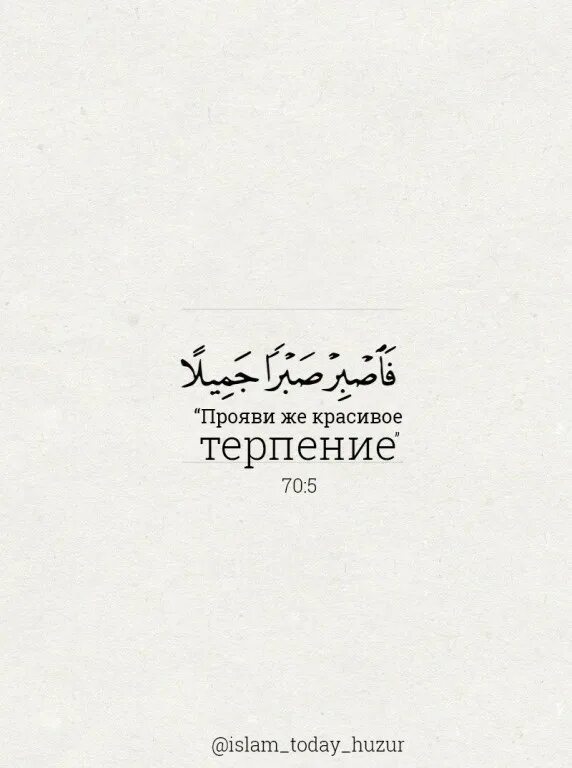 فَٱصۡبِرۡ صَبۡرٗا جَمِيلًا
“Прояви же красивое
терпение”
70:5
@islam_today_huzur